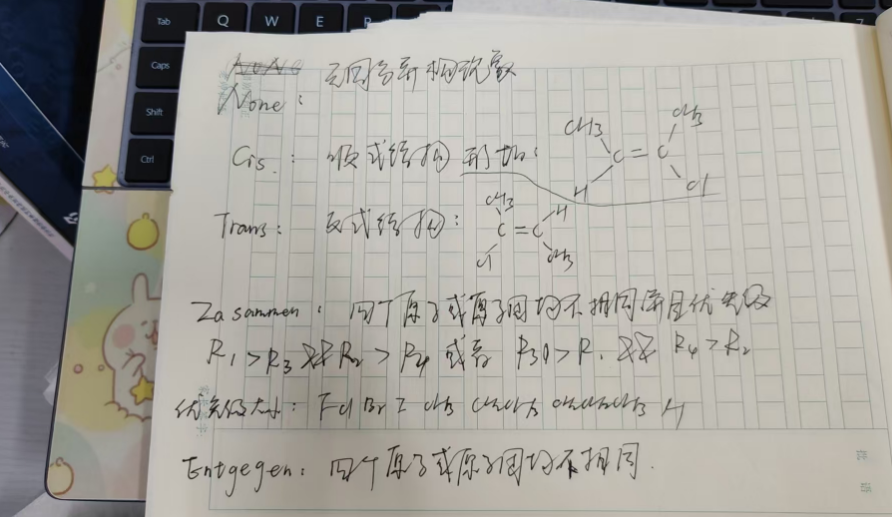 Tab Q W E R
Caps
Shift
Ctrl
None: 无同分异构现象
Cis.: 顺式结构 形如:
CH3 CH3
C=C
H Cl
Trans: 反式结构:
CH3 H
C=C
Cl CH3
Zasammen: 四个原子或原子团均不相同并且优先级
R1>R3 && R2>R4 或者 R3>R1 && R4>R2
优先级大小: F Cl Br I CH3 CH2CH3 CH2CH2CH3 H
Entgegen: 四个原子或原子团均不相同.